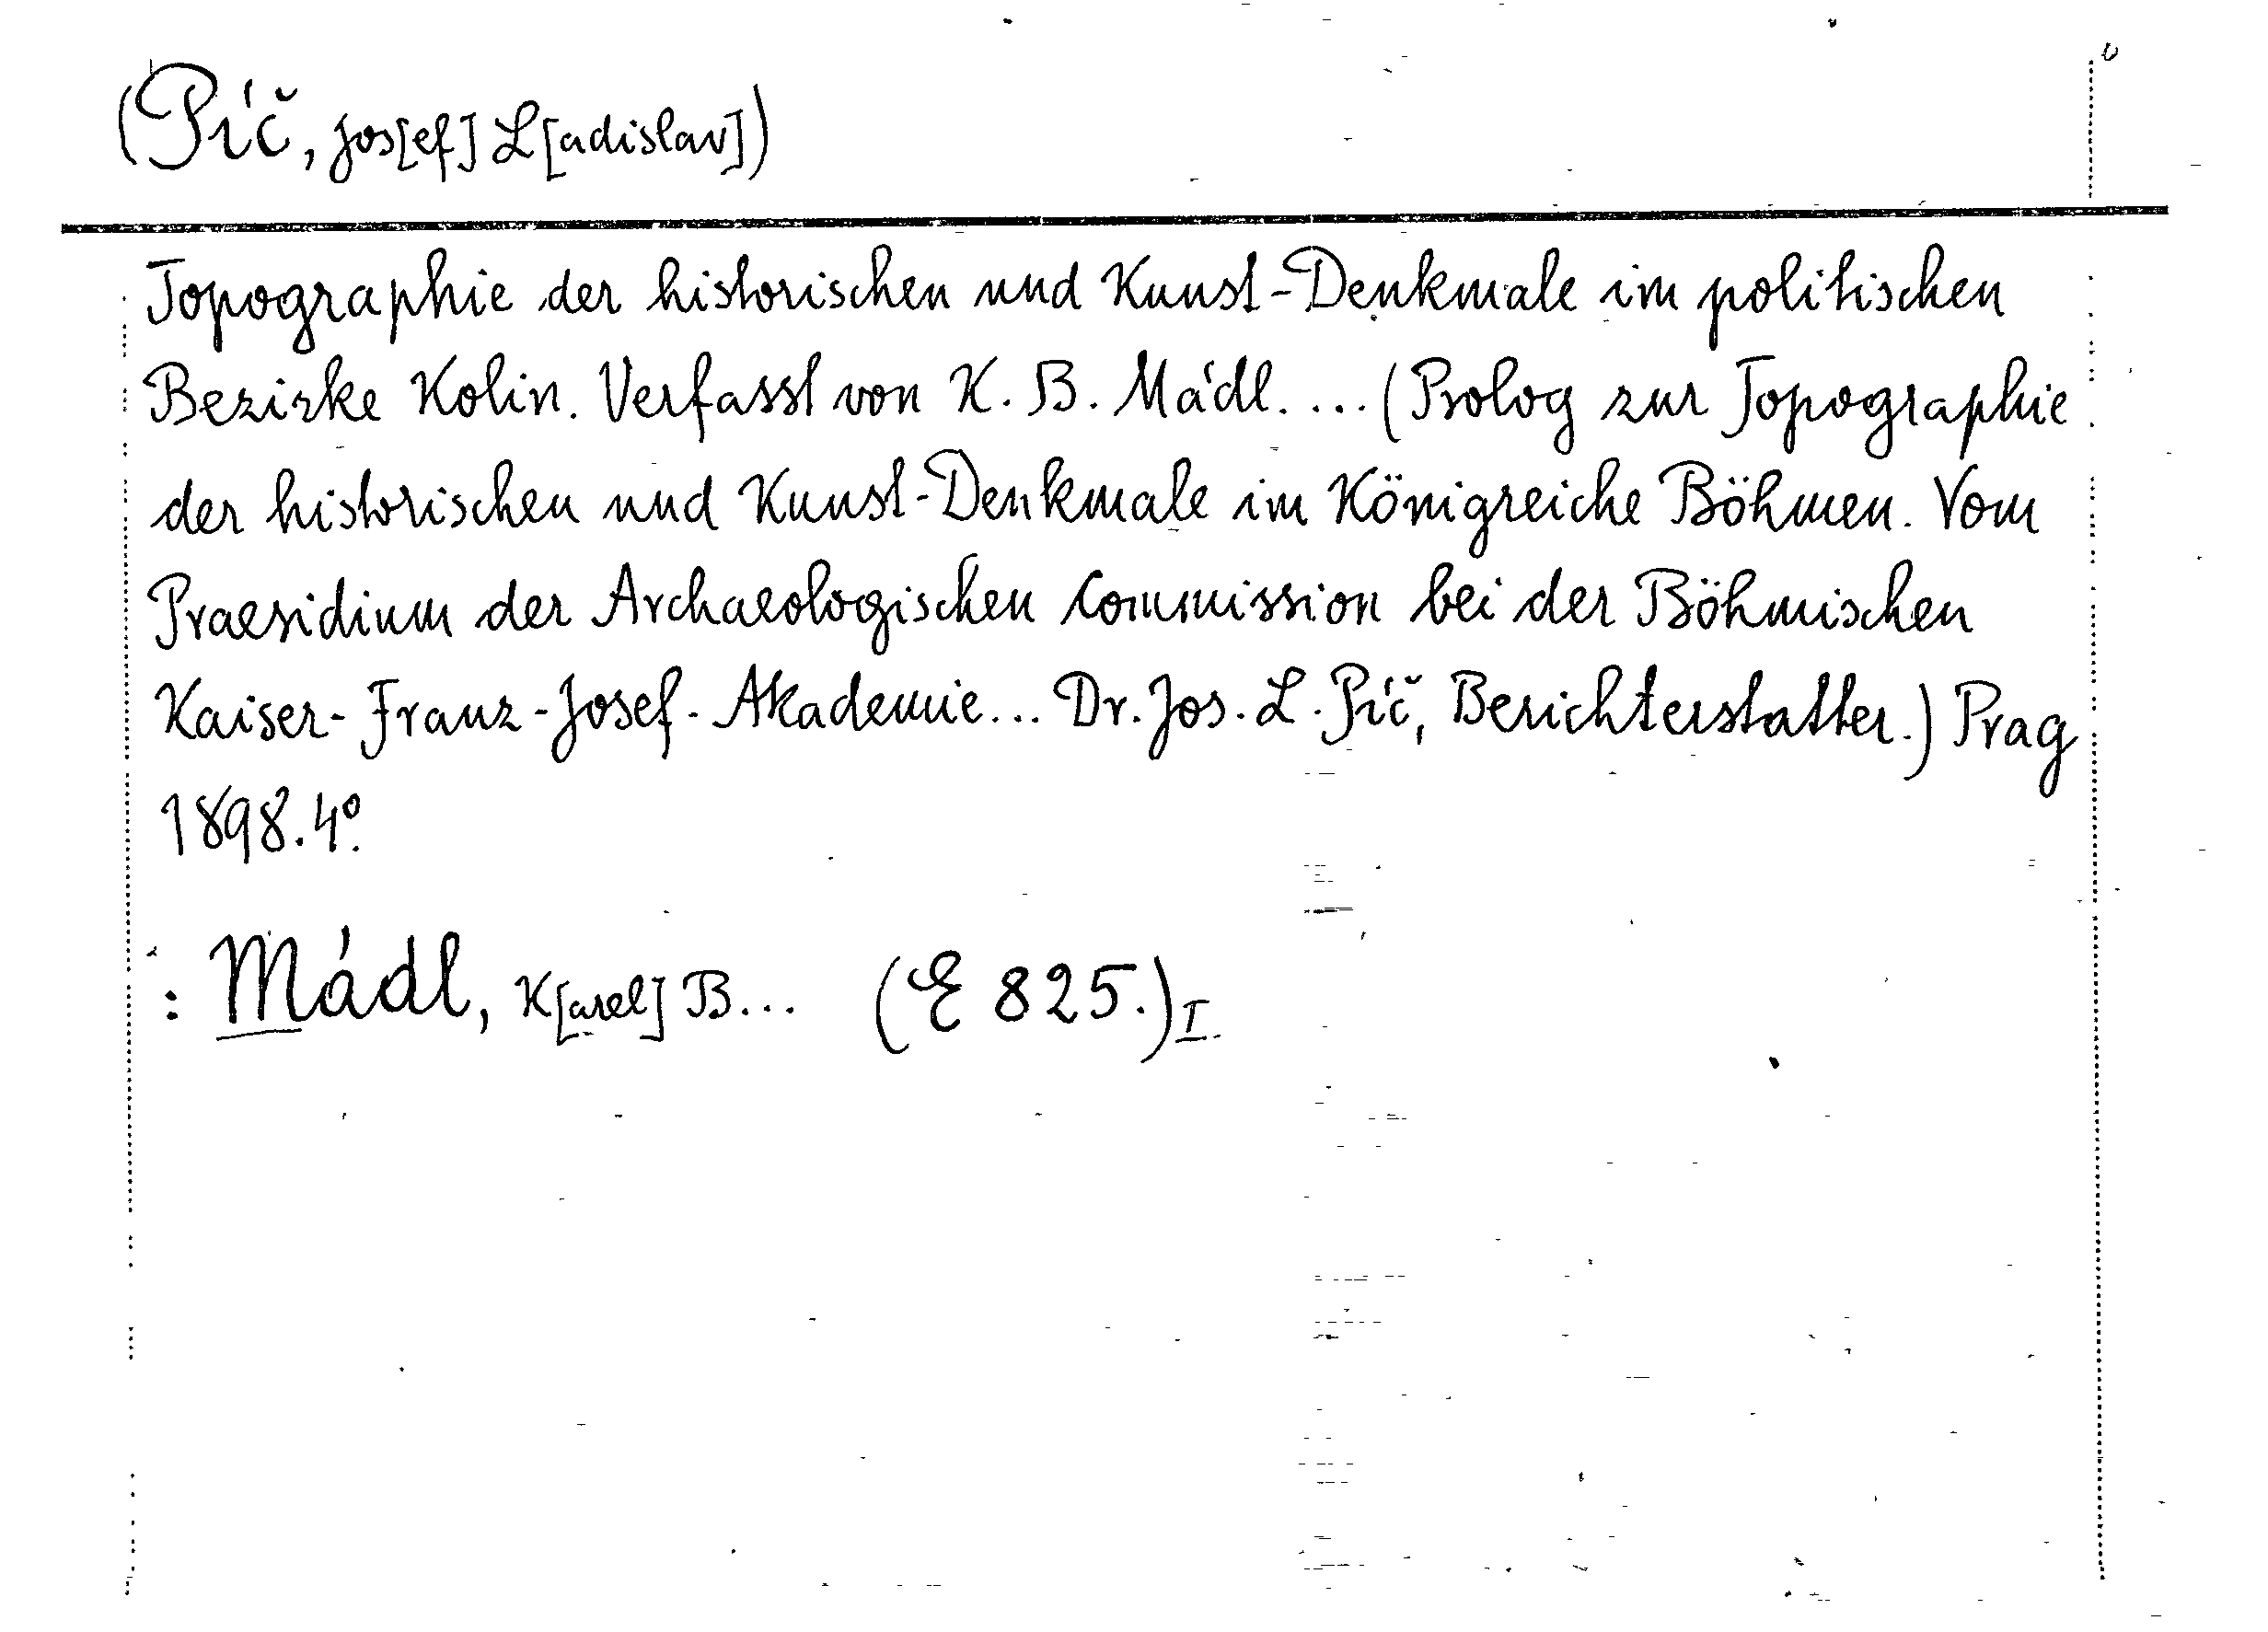 (Píč, Jos[ef] L[adislav])
Topographie der historischen und Kunst-Denkmale im politischen
Bezirke Kolin. Verfasst von K. B. Mádl. ... (Prolog zur Topographie
der historischen und Kunst-Denkmale im Königreiche Böhmen. Vom
Praesidium der Archaeologischen Commission bei der Böhmischen
Kaiser-Franz-Josef-Akademie... Dr. Jos. L. Píč, Berichterstatter.) Prag
1898. 4º.
: Mádl, K[arel] B... (E 825.) I.